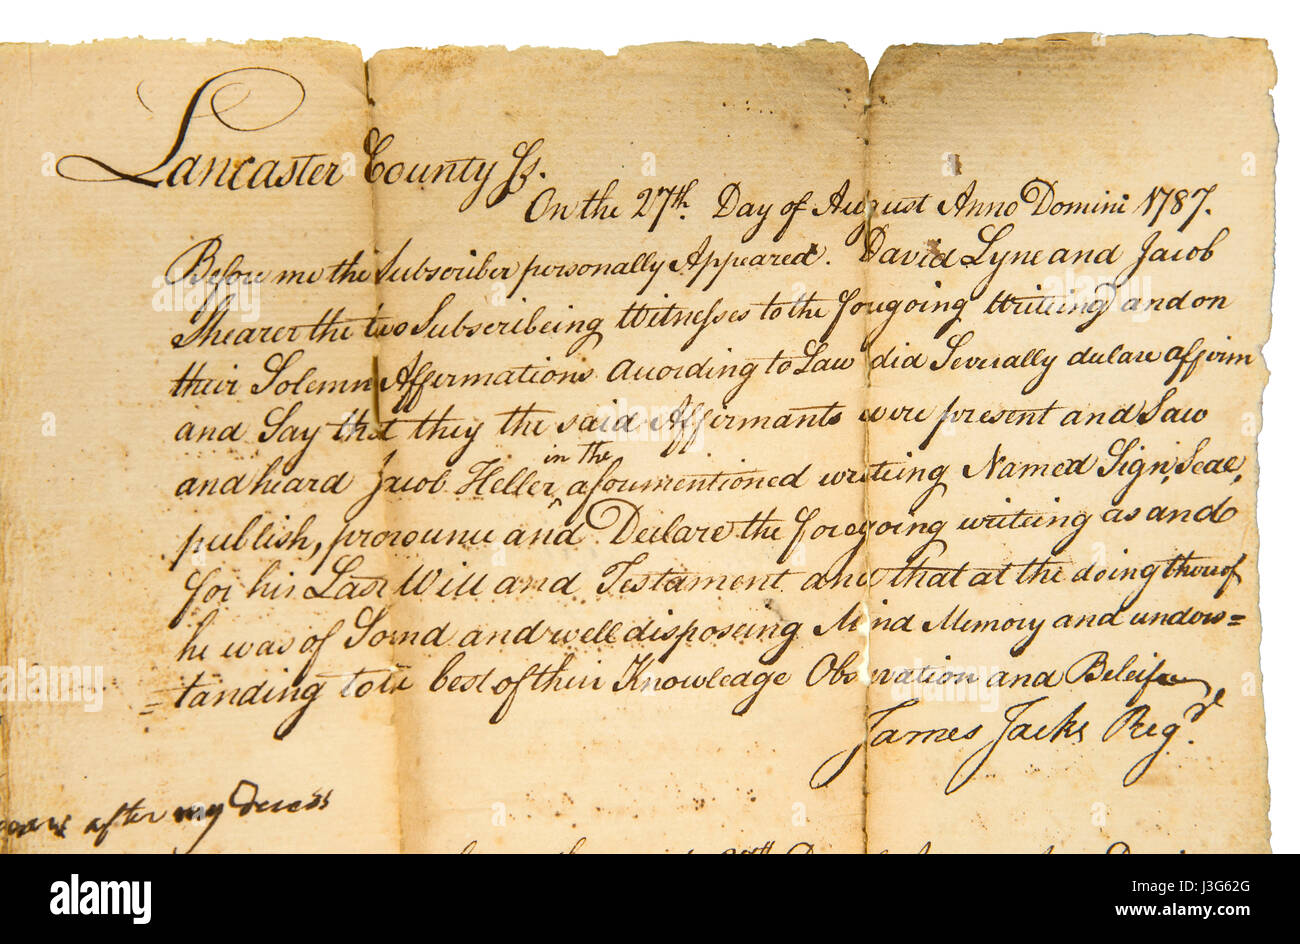 Lancaster County Ss.
On the 27th. Day of August Anno Domini 1787.
Before me the Subscriber personally Appeared. David Lyne and Jacob
Shearer the two Subscribeing Witnesses to the foregoing Writeing and on
their Solemn Affirmations According to Law did Severally declare affirm
and Say that they the said Affirmants were present and Saw
in the
and heard Jacob Heller, ^ aforementioned writeing Named Sign, Seal,
publish, pronounce and Declare the foregoing writeing as and
for his Last Will and Testament and that at the doing thereof
he was of Sound and well disposeing Mind Memory and unders=
=tanding to the best of their Knowledge Observation and Beleif
James Jacks Regd.
after my Decess
a alamy stock photo
alamy
Image ID: J3G62G
www.alamy.com